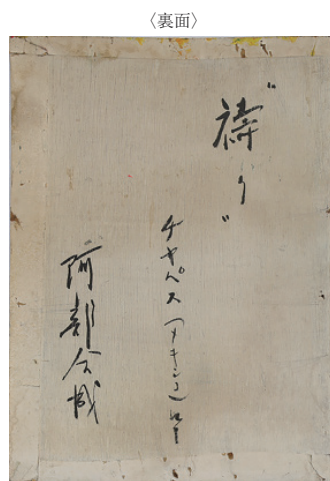 〈裏面〉
〝祷り〟
チヤパス(メキシコ)にて
阿部合成